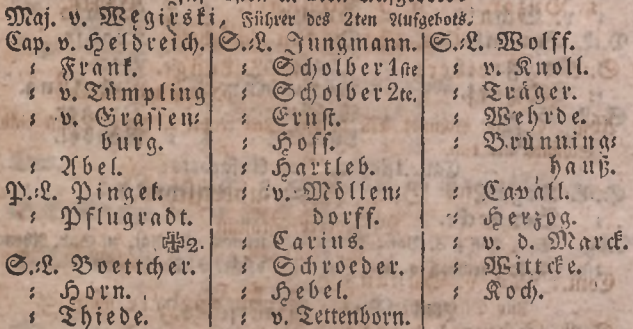 Maj. v. Węgirski, Führer des 2ten Aufgebots.
Cap. v. Heldreich.
: Frank.
: v. Tümpling
: v. Graffen:
burg.
: Abel.
P.:L. Pingel.
: Pflugradt.
2.
S.:L. Boettcher.
: Horn.
: Thiede.
S.:L. Jungmann.
: Scholber 1ste
: Scholber 2te.
: Ernst.
: Hoff.
: Hartleb.
: v. Möllen:
dorff.
: Carius.
: Schroeder.
: Hebel.
: v. Tettenborn.
S.:L. Wolff.
: v. Knoll.
: Träger.
: Wehrde.
: Brünning:
hauß.
: Caväll.
: Herzog.
: v. d. Marck.
: Wittcke.
: Koch.